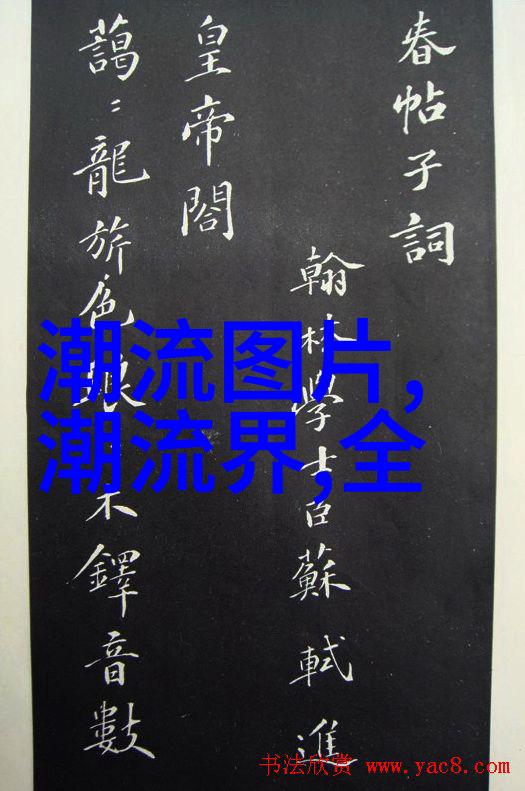 春帖子詞
翰林學士臣蘇軾進
皇帝閤
藹〻龍旂色木鐸音數
潮流图片,
潮流界,全
书法欣赏 www.yac8.com